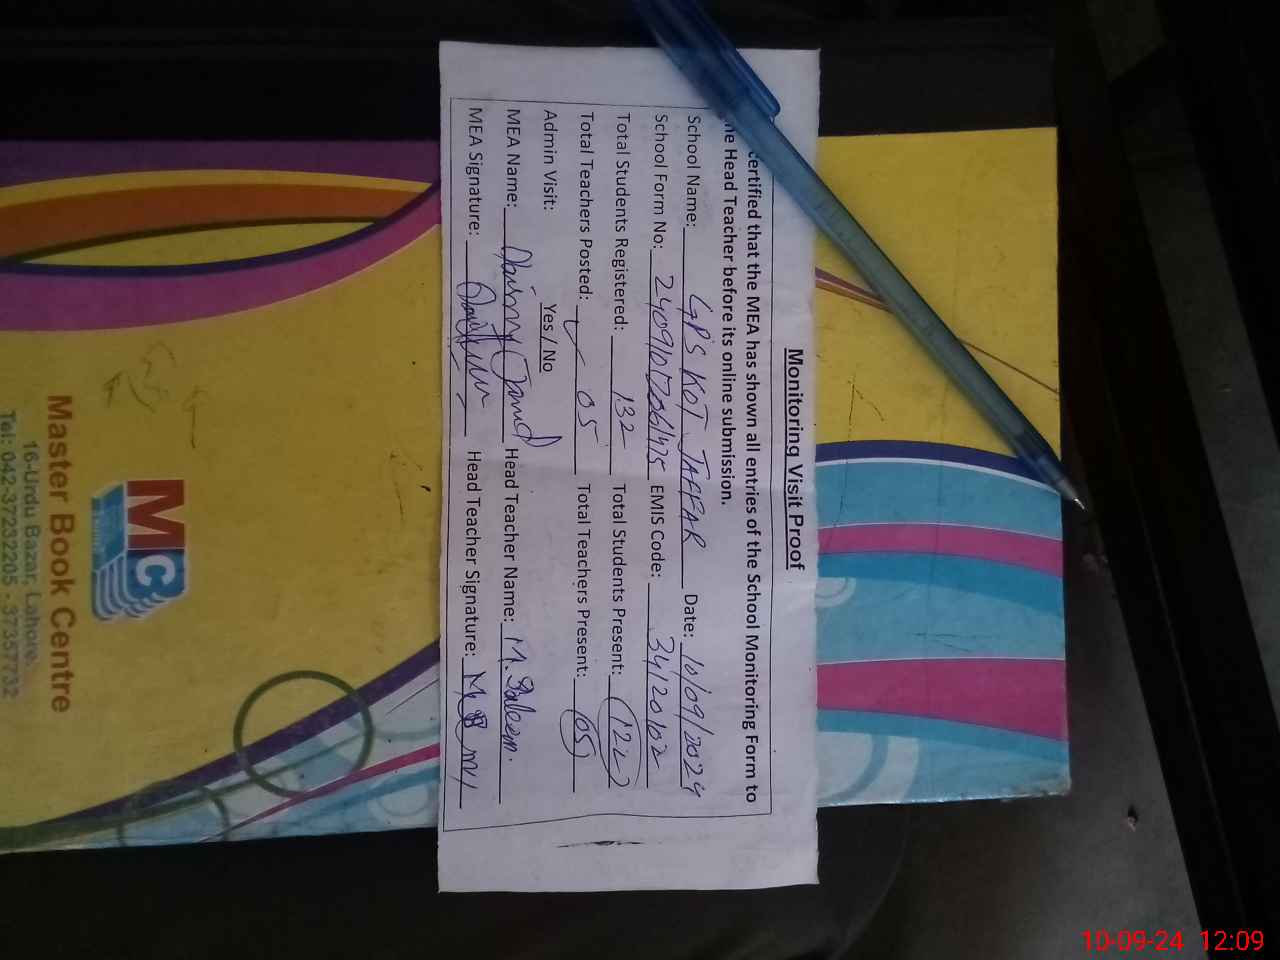 Monitoring Visit Proof
certified that the MEA has shown all entries of the School Monitoring Form to
he Head Teacher before its online submission.
School Name: GPS KOT JAFFAR Date: 10/09/2024
School Form No: EMIS Code: 34120102
Total Students Registered: 132 Total Students Present: 122
Total Teachers Posted: 05 Total Teachers Present: 05
Admin Visit: Yes / No
MEA Name: Head Teacher Name: M. Saleem.
MEA Signature: Head Teacher Signature:
MC
Master Book Centre
16-Urdu Bazar, Lahore.
Tel: 042-37232205 - 37357732
10-09-24 12:09